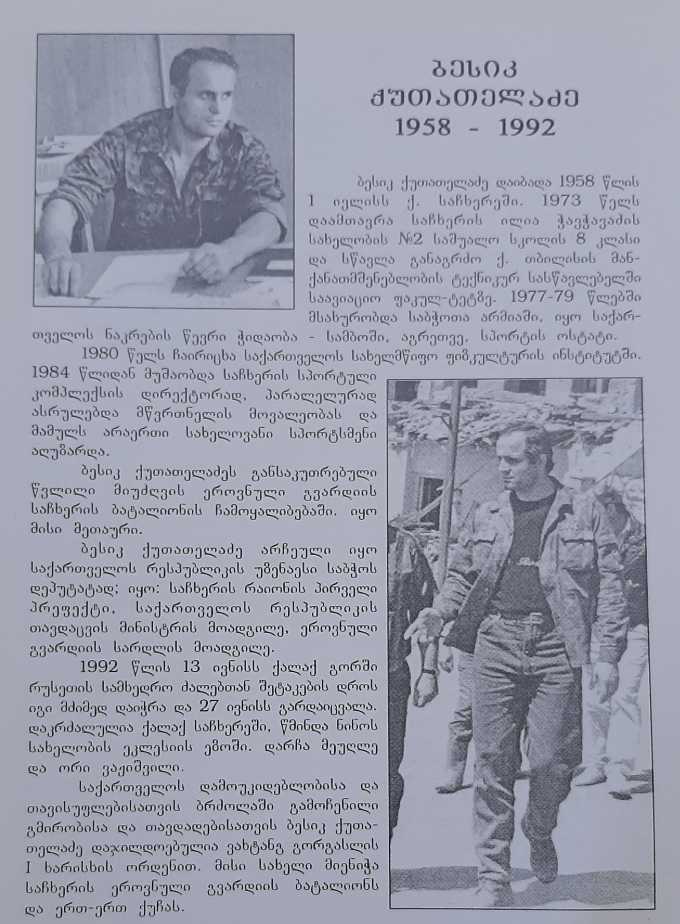 ბესიკ
ქუთათელაძე
1958 - 1992
ბესიკ ქუთათელაძე დაიბადა 1958 წლის
1 ივლისს ქ. საჩხერეში. 1973 წელს
დაამთავრა საჩხერის ილია ჭავჭავაძის
სახელობის №2 საშუალო სკოლის 8 კლასი
და სწავლა განაგრძო ქ. თბილისის მან-
ქანათმშენებლობის ტექნიკურ სასწავლებელში
საავიაციო ფაკულ-ტეტზე. 1977-79 წლებში
მსახურობდა საბჭოთა არმიაში, იყო საქარ-
თველოს ნაკრების წევრი ჭიდაობა - სამბოში, აგრეთვე, სპორტის ოსტატი.
1980 წელს ჩაირიცხა საქართველოს სახელმწიფო ფიზკულტურის ინსტიტუტში.
1984 წლიდან მუშაობდა საჩხერის სპორტული
კომპლექსის დირექტორად, პარალელურად
ასრულებდა მწვრთნელის მოვალეობას და
მამულს არაერთი სახელოვანი სპორტსმენი
აღუზარდა.
ბესიკ ქუთათელაძეს განსაკუთრებული
წვლილი მიუძღვის ეროვნული გვარდიის
საჩხერის ბატალიონის ჩამოყალიბებაში. იყო
მისი მეთაური.
ბესიკ ქუთათელაძე არჩეული იყო
საქართველოს რესპუბლიკის უზენაესი საბჭოს
დეპუტატად; იყო: საჩხერის რაიონის პირველი
პრეფექტი, საქართველოს რესპუბლიკის
თავდაცვის მინისტრის მოადგილე, ეროვნული
გვარდიის სარდლის მოადგილე.
1992 წლის 13 ივნისს ქალაქ გორში
რუსეთის სამხედრო ძალებთან შეტაკების დროს
იგი მძიმედ დაიჭრა და 27 ივნისს გარდაიცვალა.
დაკრძალულია ქალაქ საჩხერეში, წმინდა ნინოს
სახელობის ეკლესიის ეზოში. დარჩა მეუღლე
და ორი ვაჟიშვილი.
საქართველოს დამოუკიდებლობისა და
თავისუფლებისათვის ბრძოლაში გამოჩენილი
გმირობისა და თავდადებისათვის ბესიკ ქუთა-
თელაძე დაჯილდოებულია ვახტანგ გორგასლის
I ხარისხის ორდენით. მისი სახელი მიენიჭა
საჩხერის ეროვნული გვარდიის ბატალიონს
და ერთ-ერთ ქუჩას.